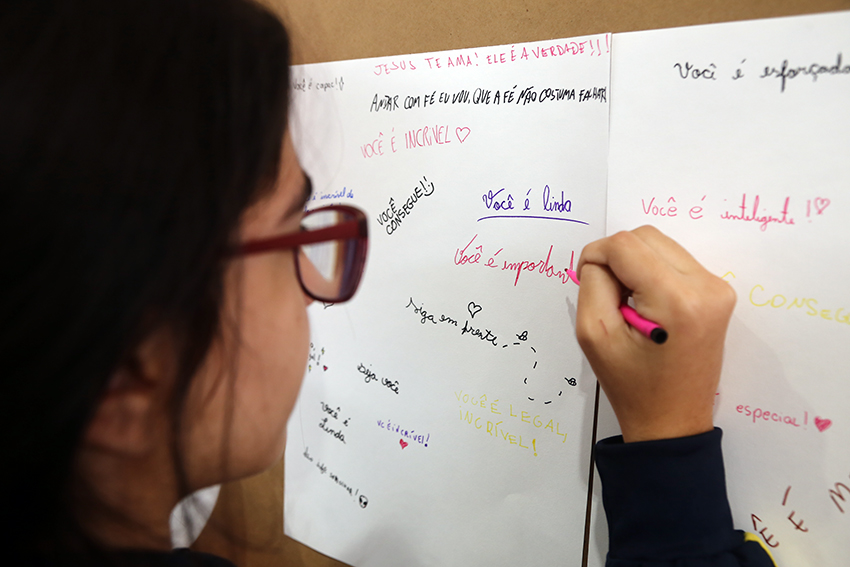 Você é capaz!
JESUS TE AMA! ELE É A VERDADE!!!
ANDAR COM FÉ EU VOU, QUE A FÉ NÃO COSTUMA FALHAR
VOCÊ É INCRÍVEL
VOCÊ
CONSEGUE!
Você é linda
Você é important
Siga em frente
Seja você
Você é
Linda
VC É INCRÍVEL!
VOCÊ É LEGAL,
INCRÍVEL!
Você é esforçada
Você é inteligente!
Ê CONSEGUE
especial!